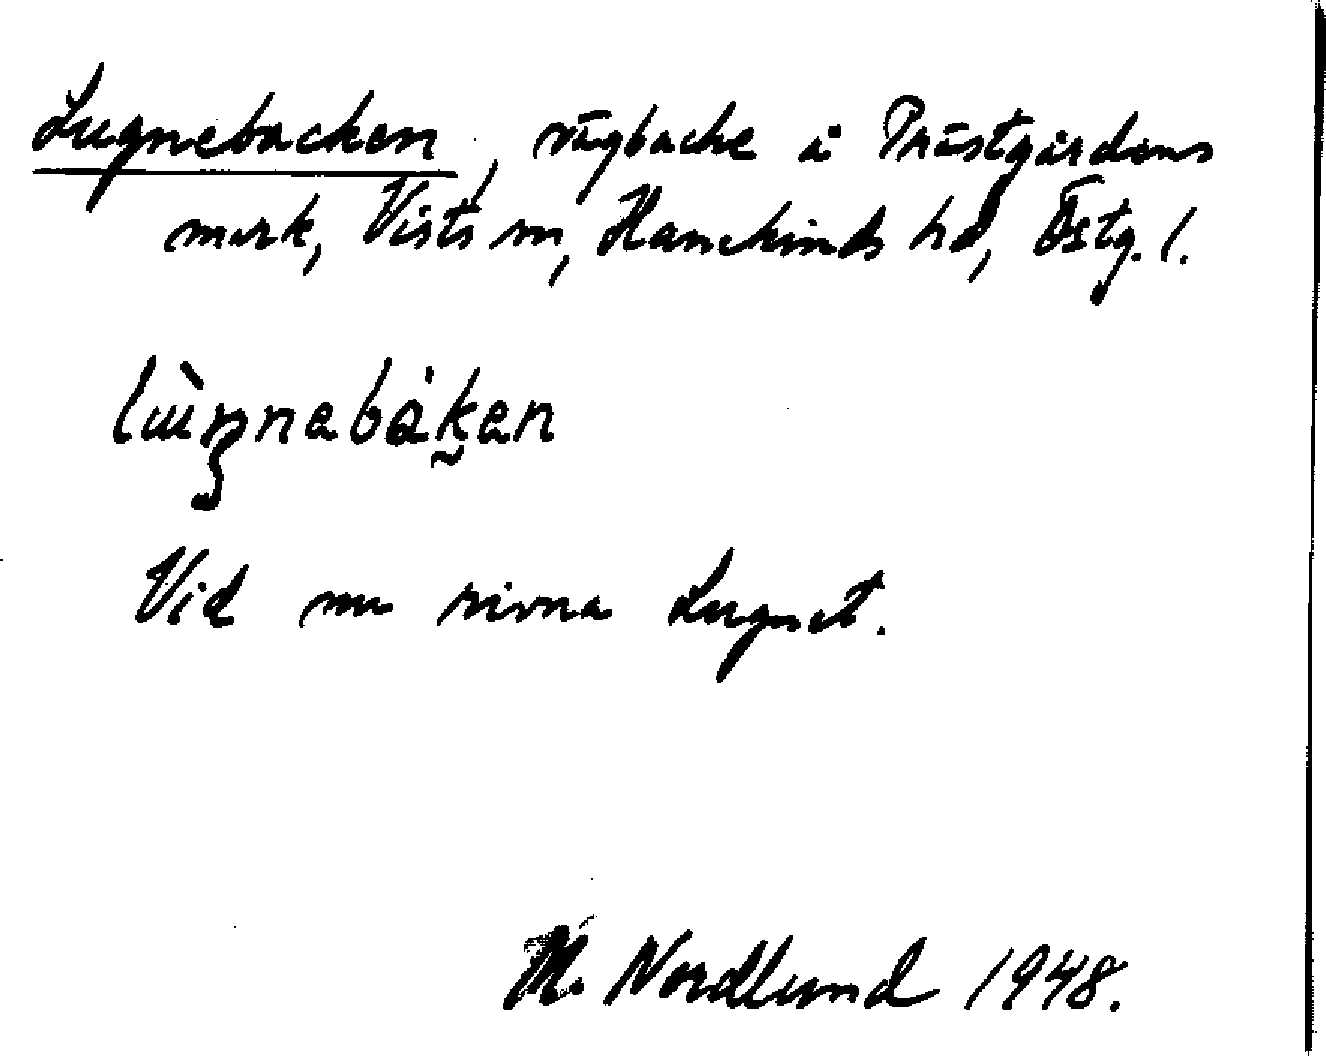 Lugnebacken, vägbacke å Prästgårdens
mark, Vists sn, Hanekinds hd, Östg. l.
lɯ̀ŋnebáken
Vid nu rivna Lugnet.
M. Nordlund 1948.